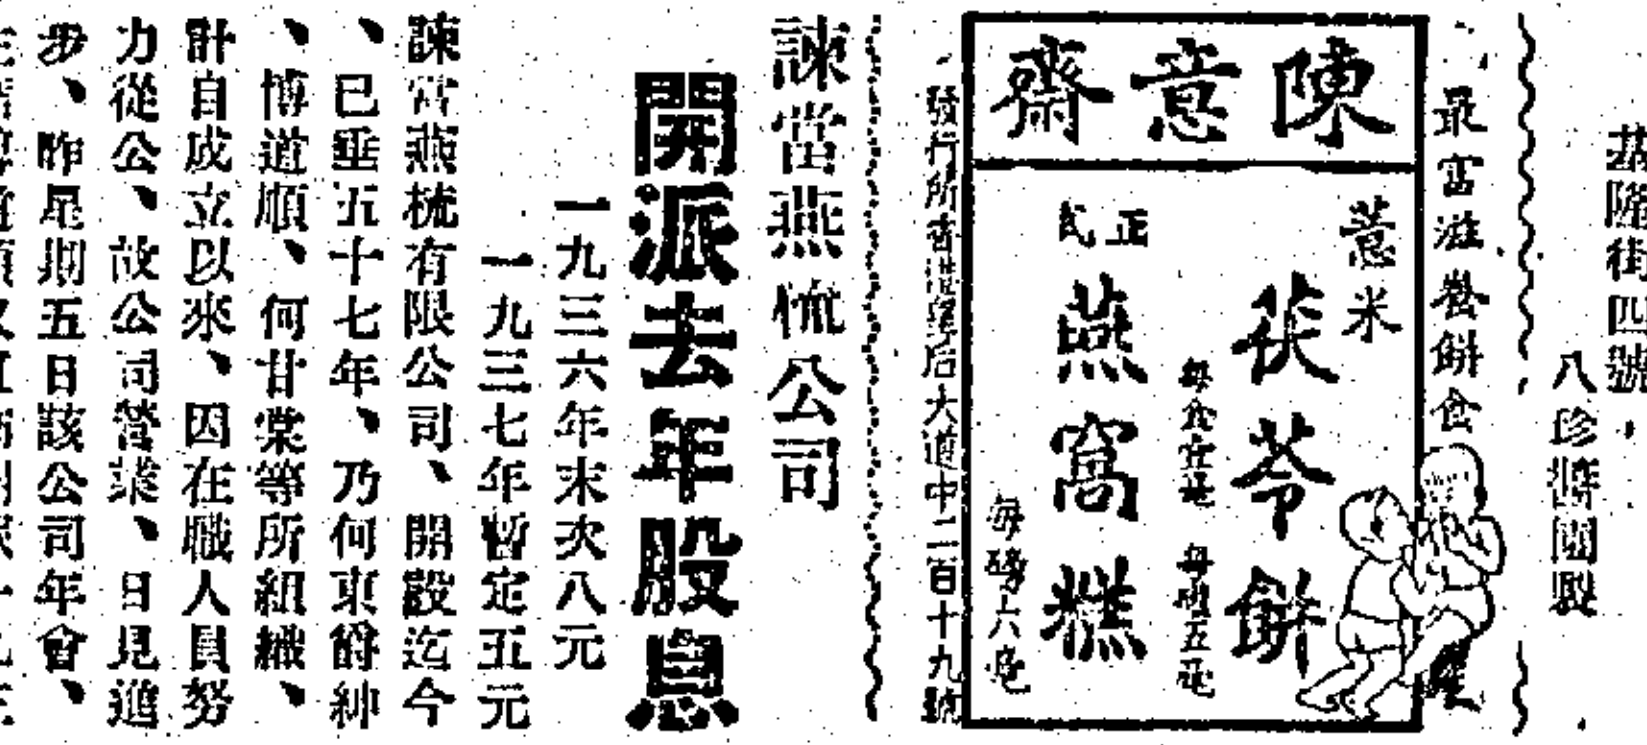 基隆街四號、
八珍擠團製
最富滋養餅食
陳意齋
薏米
茯苓餅
每盒五毫
正式
燕窩糕
每磅六毫
發行所香港皇后大道中二百十九號
諫當燕梳公司
開派去年股息
一九三六年末次八元
一九三七年暫定五元
諫當燕梳有限公司、開設迄今
、已垂五十七年、乃何東爵紳
、博道順、何甘棠等所組織、
計自成立以來、因在職人員努
力從公、故公司營業、日見進
步、昨星期五日該公司年會、